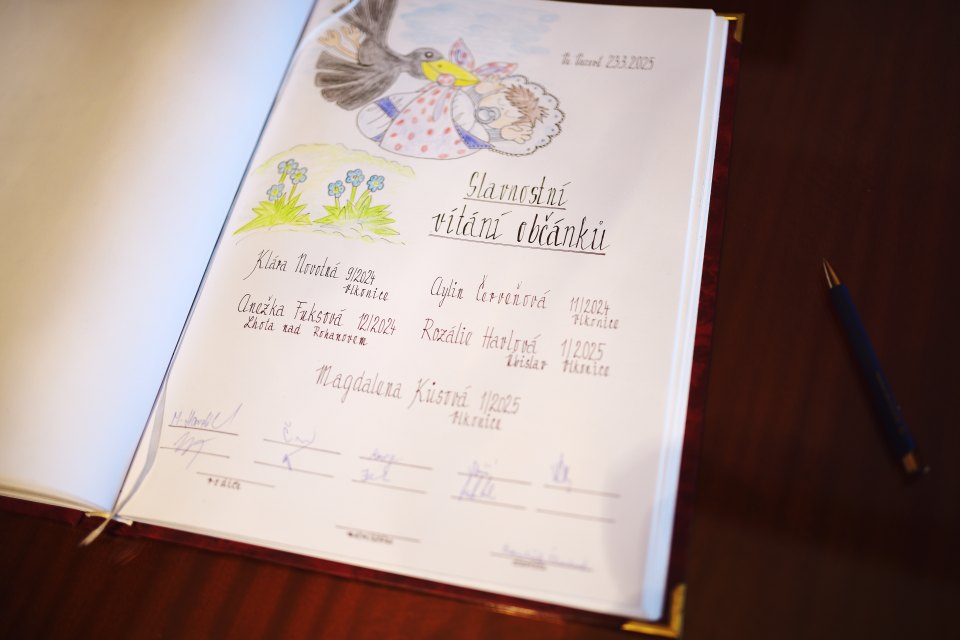 23.3.2025
Slavnostní
vítání občánků
Klára Novotná 9/2024
Vlkonice
Aylin Červeňová 11/2024
Vlkonice
Anežka Fuksová 12/2024
Lhota nad Rohanovem
Rozálie Havlová 1/2025
Úbislav Vlkonice
Magdalena Kůsová 1/2025
Vlkonice
rodiče